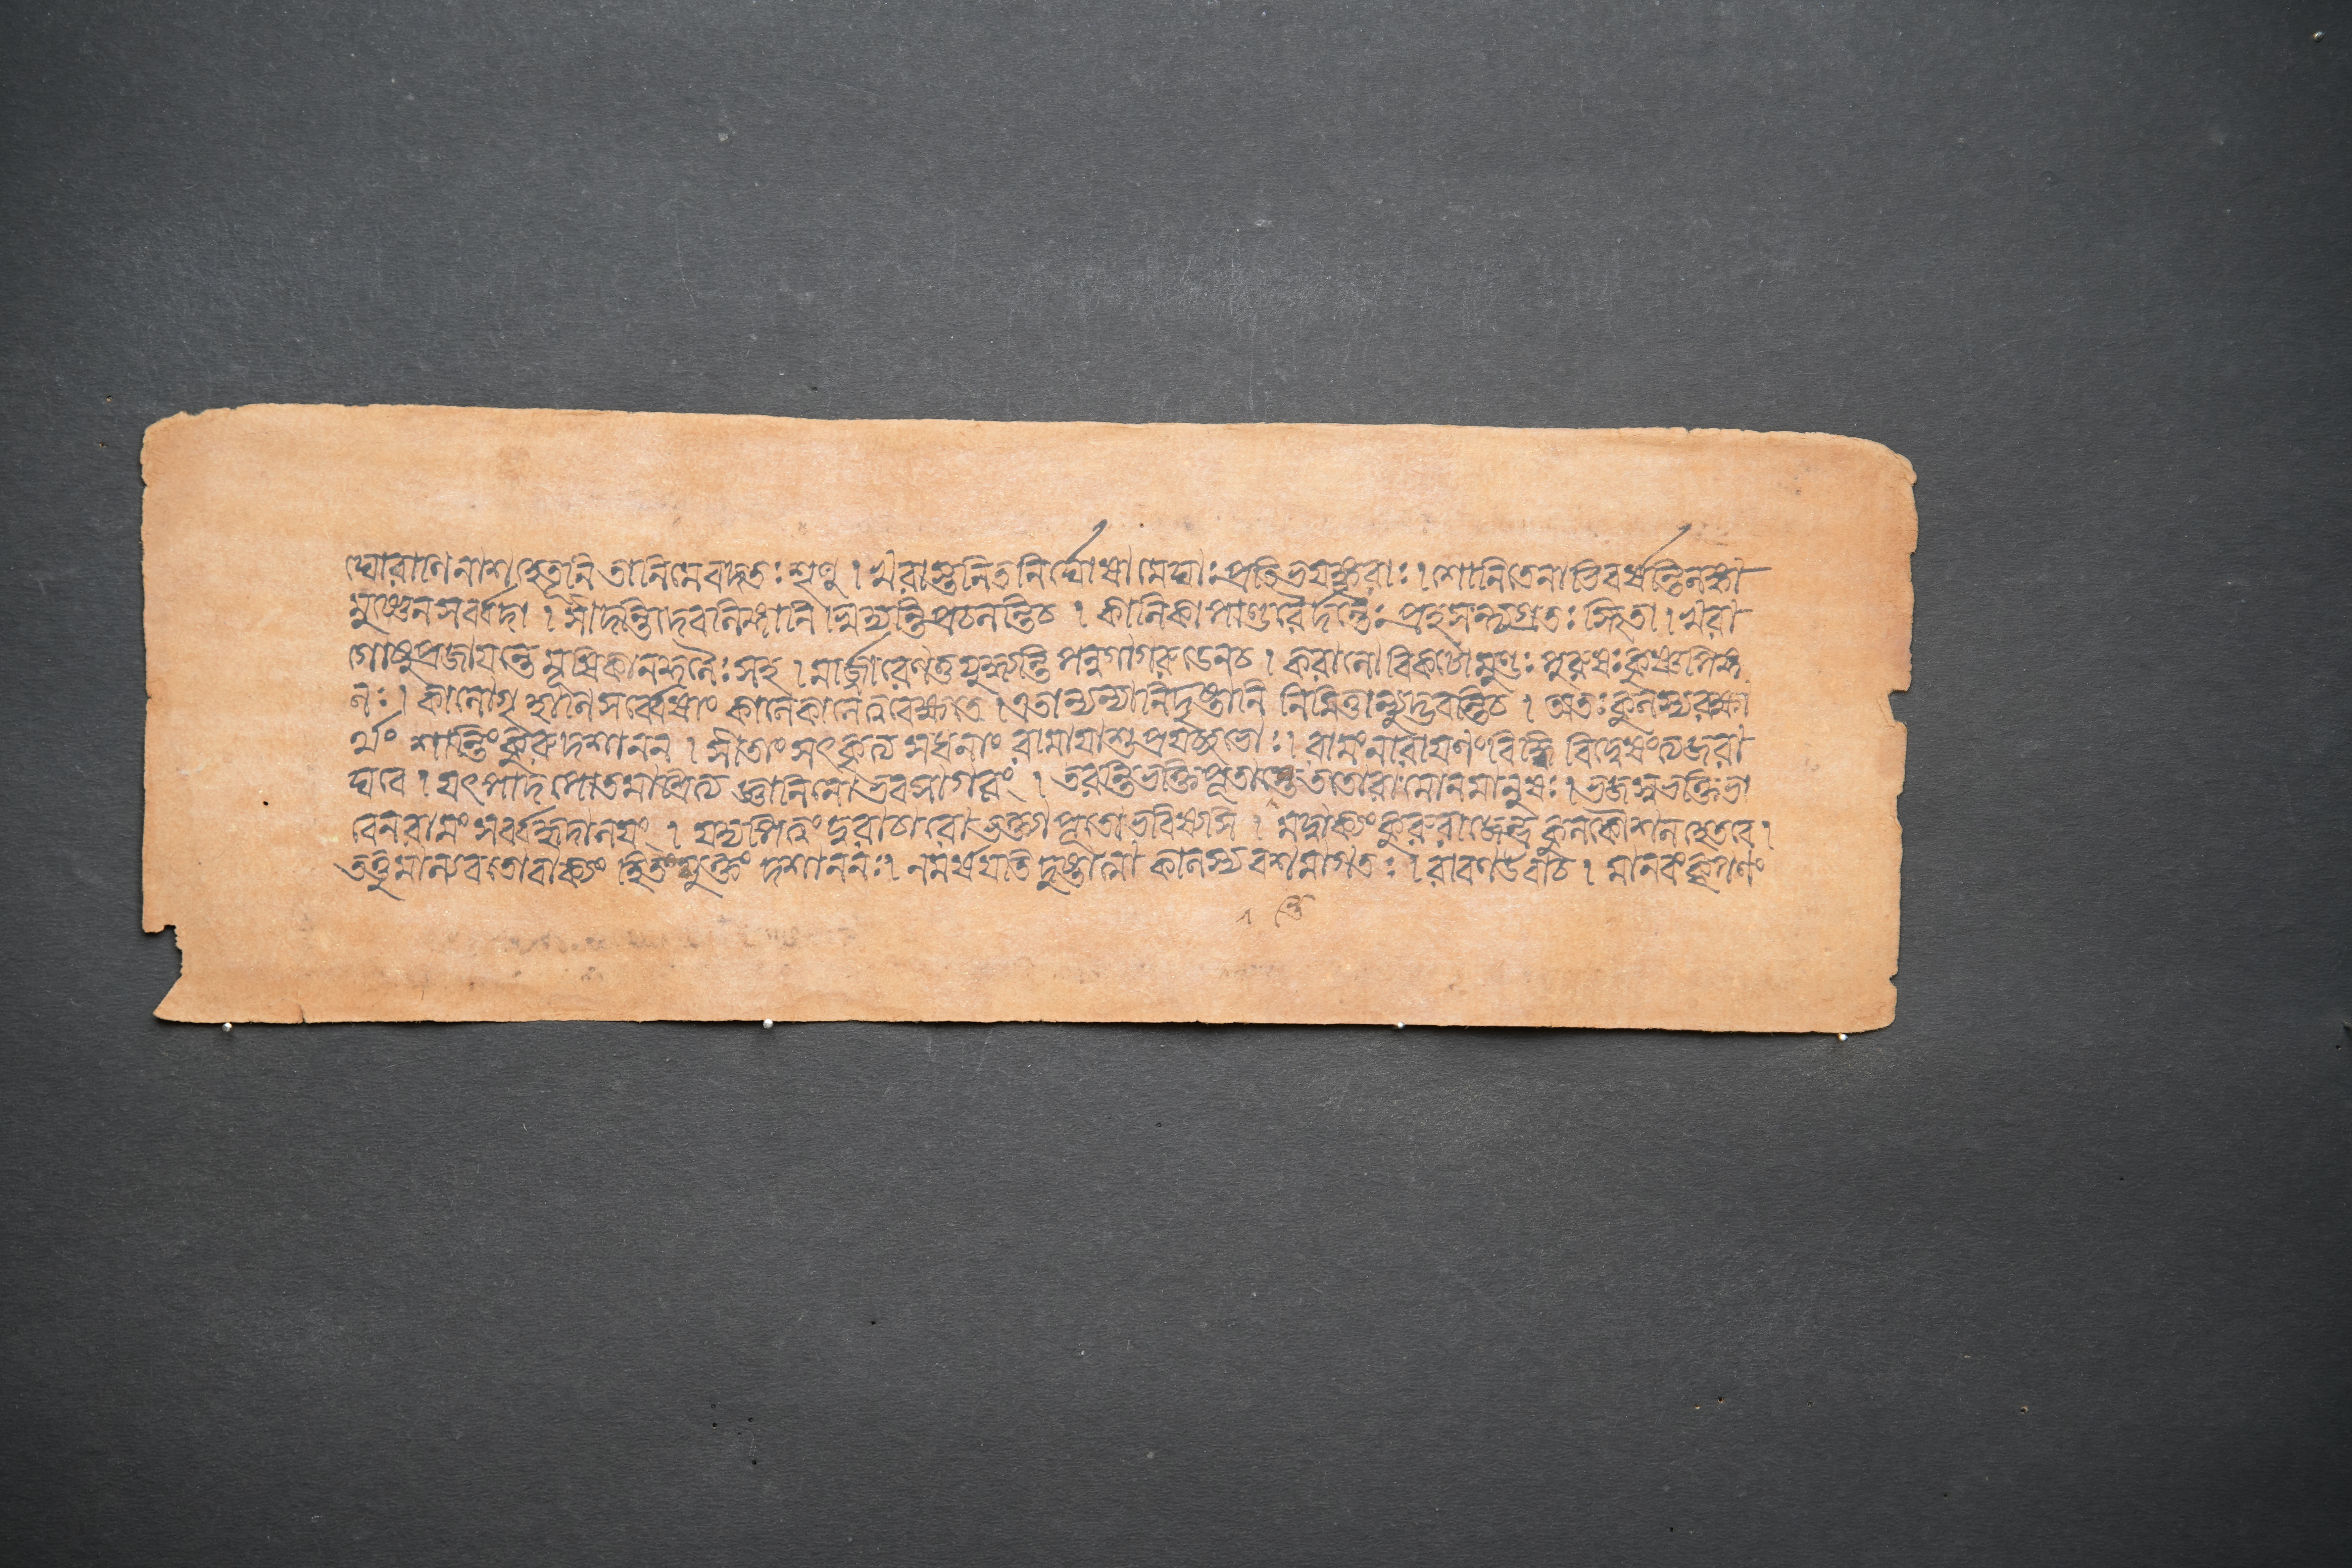 ঘোরাণি নাশহেতূনি তানি মে বদতঃ শৃণু । খরাস্তনিতনির্ঘোষা মেঘাঃ প্রতিভয়ঙ্করাঃ । শোনিতেনাভিবর্ষন্তি লঙ্কা
মুষ্ণেন সর্ব্বদা । সীদন্তি দেবলিঙ্গানি স্বিদ্যন্তি প্রচলন্তি চ । কালিকা পাণ্ডুরৈর্দন্তৈঃ প্রহসন্ত্যগ্রতঃ স্থিতা । খরা
গোষু প্রজায়ন্তে মূষিকা নকুলৈঃ সহ । মার্জ্জারেণ তু যুধ্যন্তি পন্নগা গরুডেন চ । করালো বিকটো মুণ্ডঃ পুরুষঃ কৃষ্ণপিঙ্গ
লঃ । কালো গৃহানি সর্ব্বেষাং কালে কালে ত্ববেক্ষতে । এতান্যন্যানি দৃষ্টানি নিমিত্তান্যুদ্ভবন্তি চ । অতঃ কুলস্য রক্ষা
র্থং শান্তিং কুরু দশানন । সীতাং সৎকৃত্য সধনাং রামায়াশু প্রযচ্ছ ভোঃ । রামং নারায়ণং বিদ্ধি বিদ্বেষং ত্যজ রা
ঘবে । যৎপাদপোতমাশ্রিত্য জ্ঞানিনো ভবসাগরং । তরন্তি ভক্তিপূতাস্তে ততো রামো ন মানুষঃ । ভজস্ব ভক্তিভা
বেন রামং সর্ব্বহৃদালয়ং । যদ্যপি ত্বং দুরাচারো ভক্ত্যা পূতো ভবিষ্যসি । মদ্বাক্যং কুরু রাজেন্দ্র কুলকৌশলহেতবে ।
তত্তু মাল্যবতো বাক্যং হিতমুক্তং দশাননঃ । ন মর্ষয়তি দুষ্টাত্মা কালস্য বশমাগতঃ । রাবণ উবাচ । মানবং কৃপণং